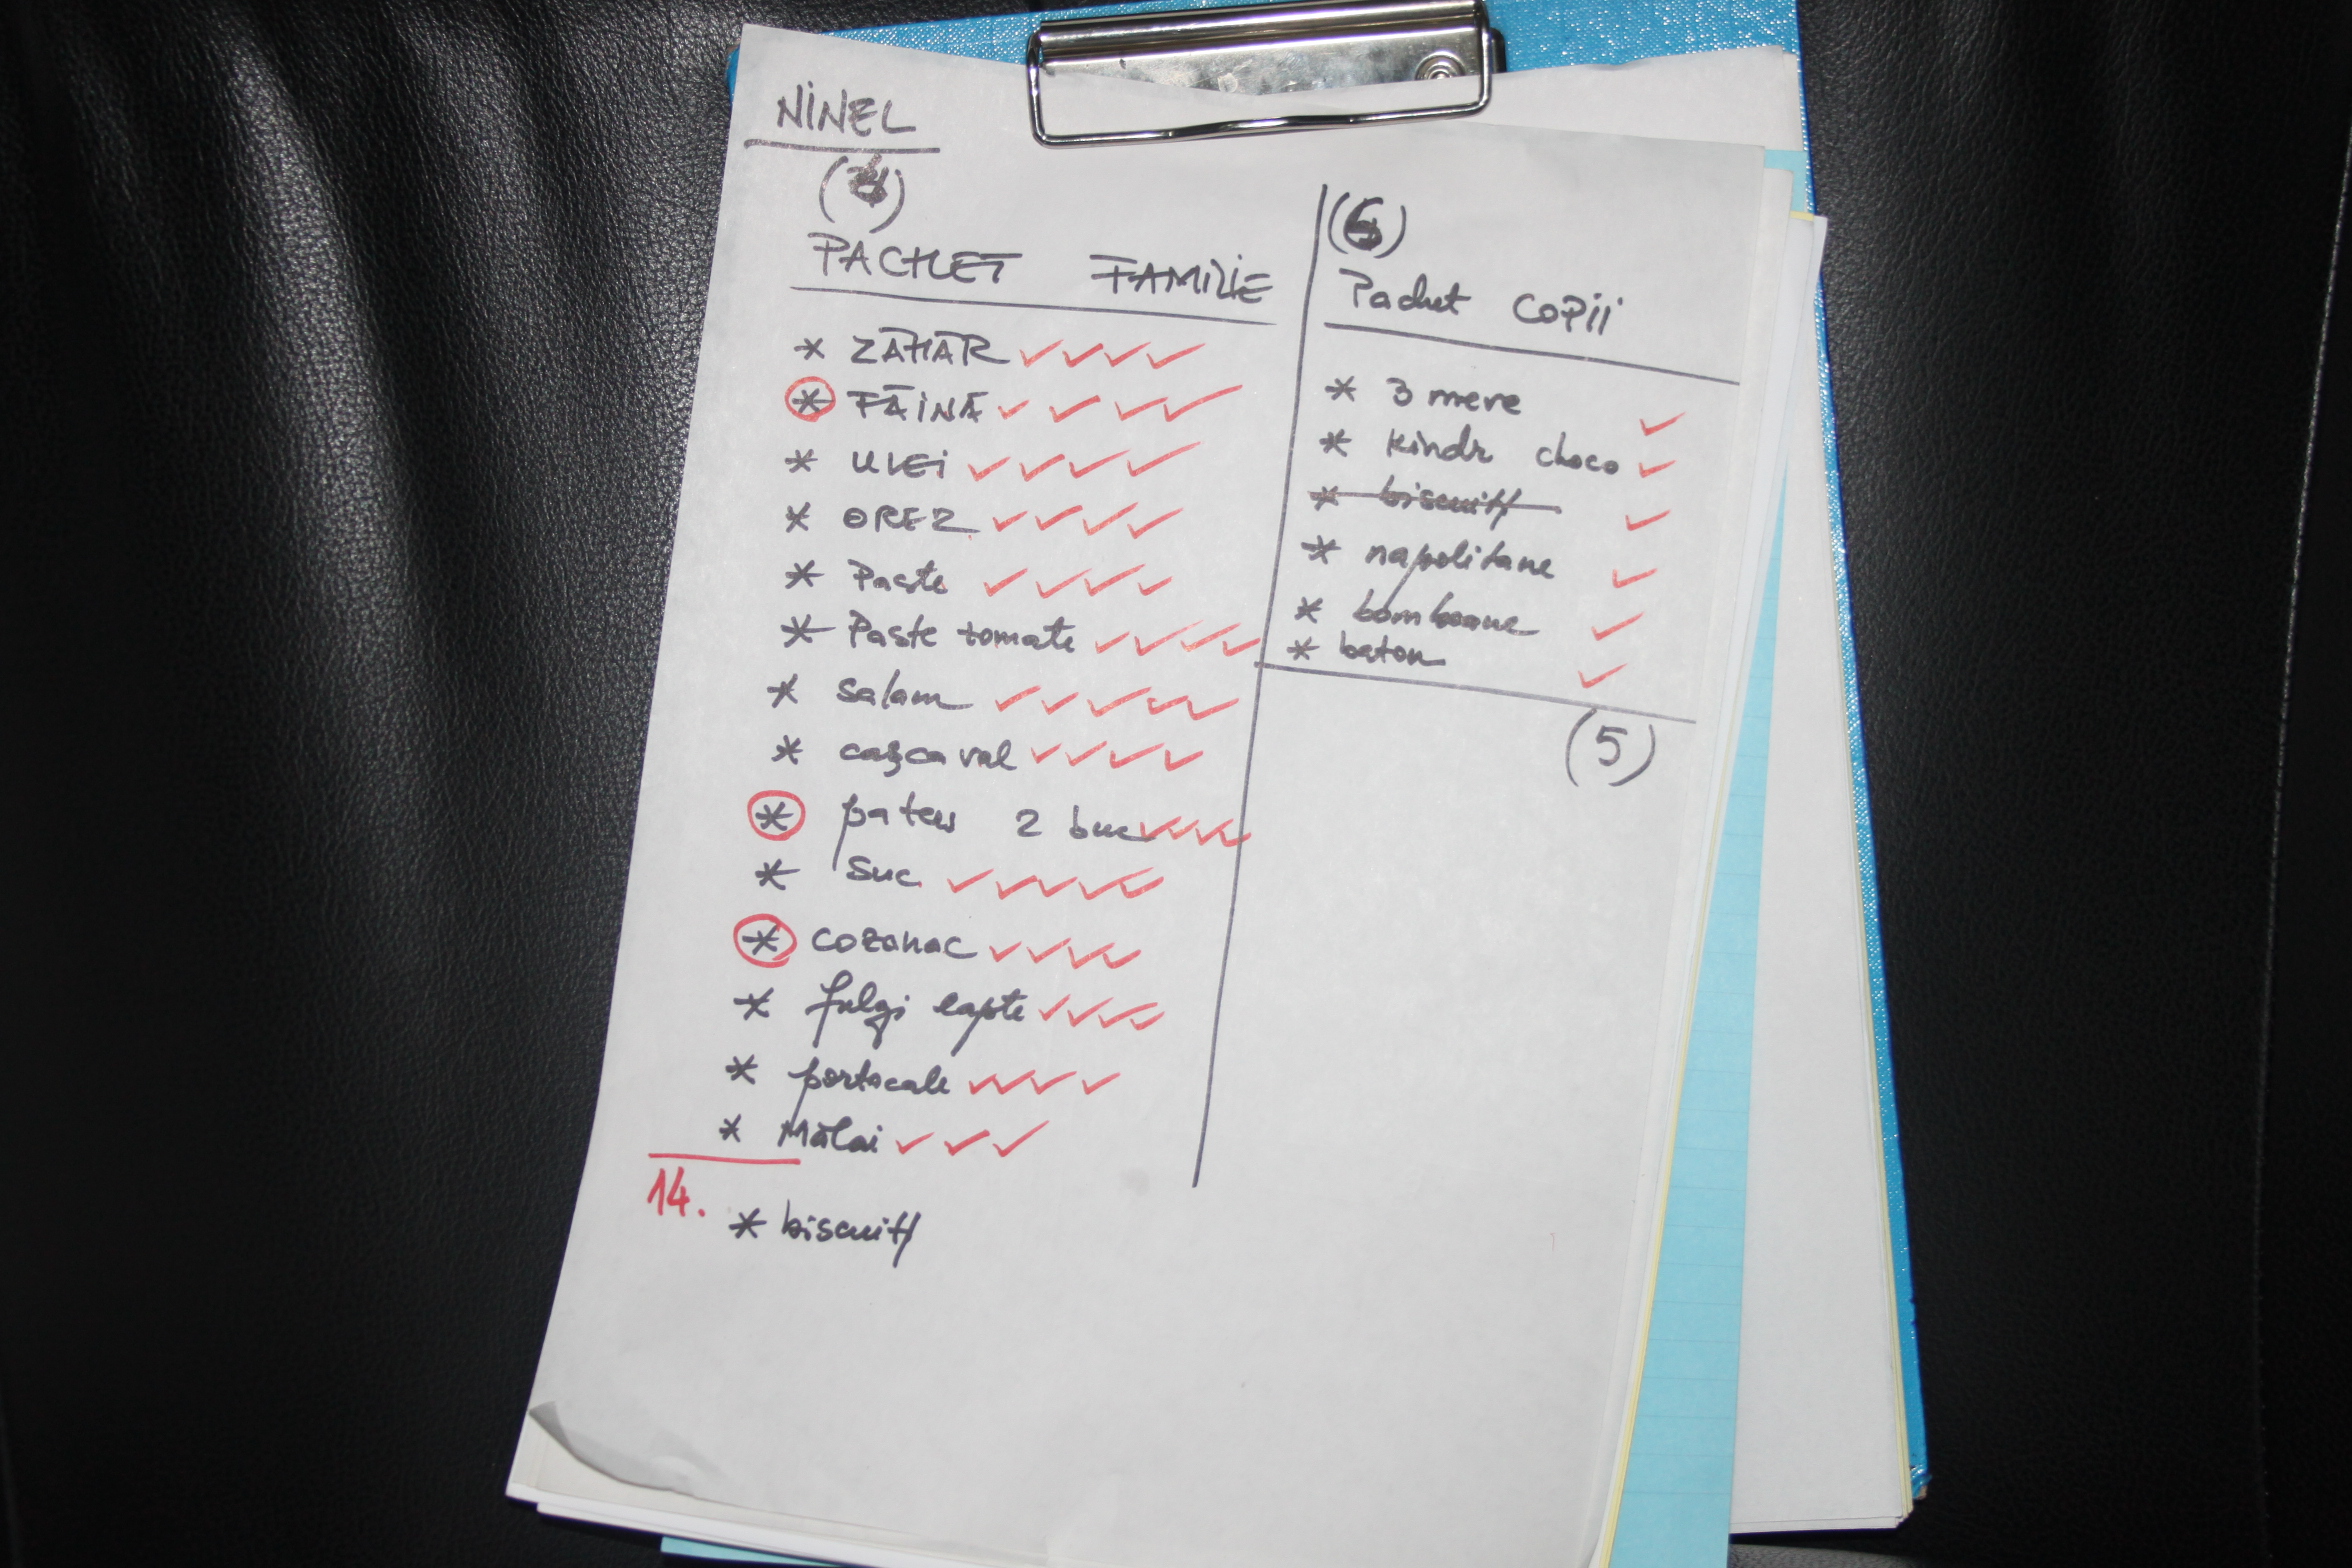 NINEL
(4)
PACHET FAMILIE
* ZAHAR ✓✓✓✓
* FĂINĂ ✓✓✓✓
* ULEi ✓✓✓✓
* OREZ ✓✓✓✓
* Paste ✓✓✓✓
* Paste tomate ✓✓✓✓
* Salam ✓✓✓✓✓
* cașcaval ✓✓✓✓
* pateu 2 buc ✓✓✓✓
* Suc ✓✓✓✓✓
* COZONAC ✓✓✓✓
* fulgi lapte ✓✓✓✓
* portocale ✓✓✓✓
* Mălai ✓✓✓
14.
* biscuiți
Pachet COPii
* 3 mere ✓
* kindr choco ✓
* biscuiți ✓
* napolitane ✓
* bomboane ✓
* baton ✓
(5)